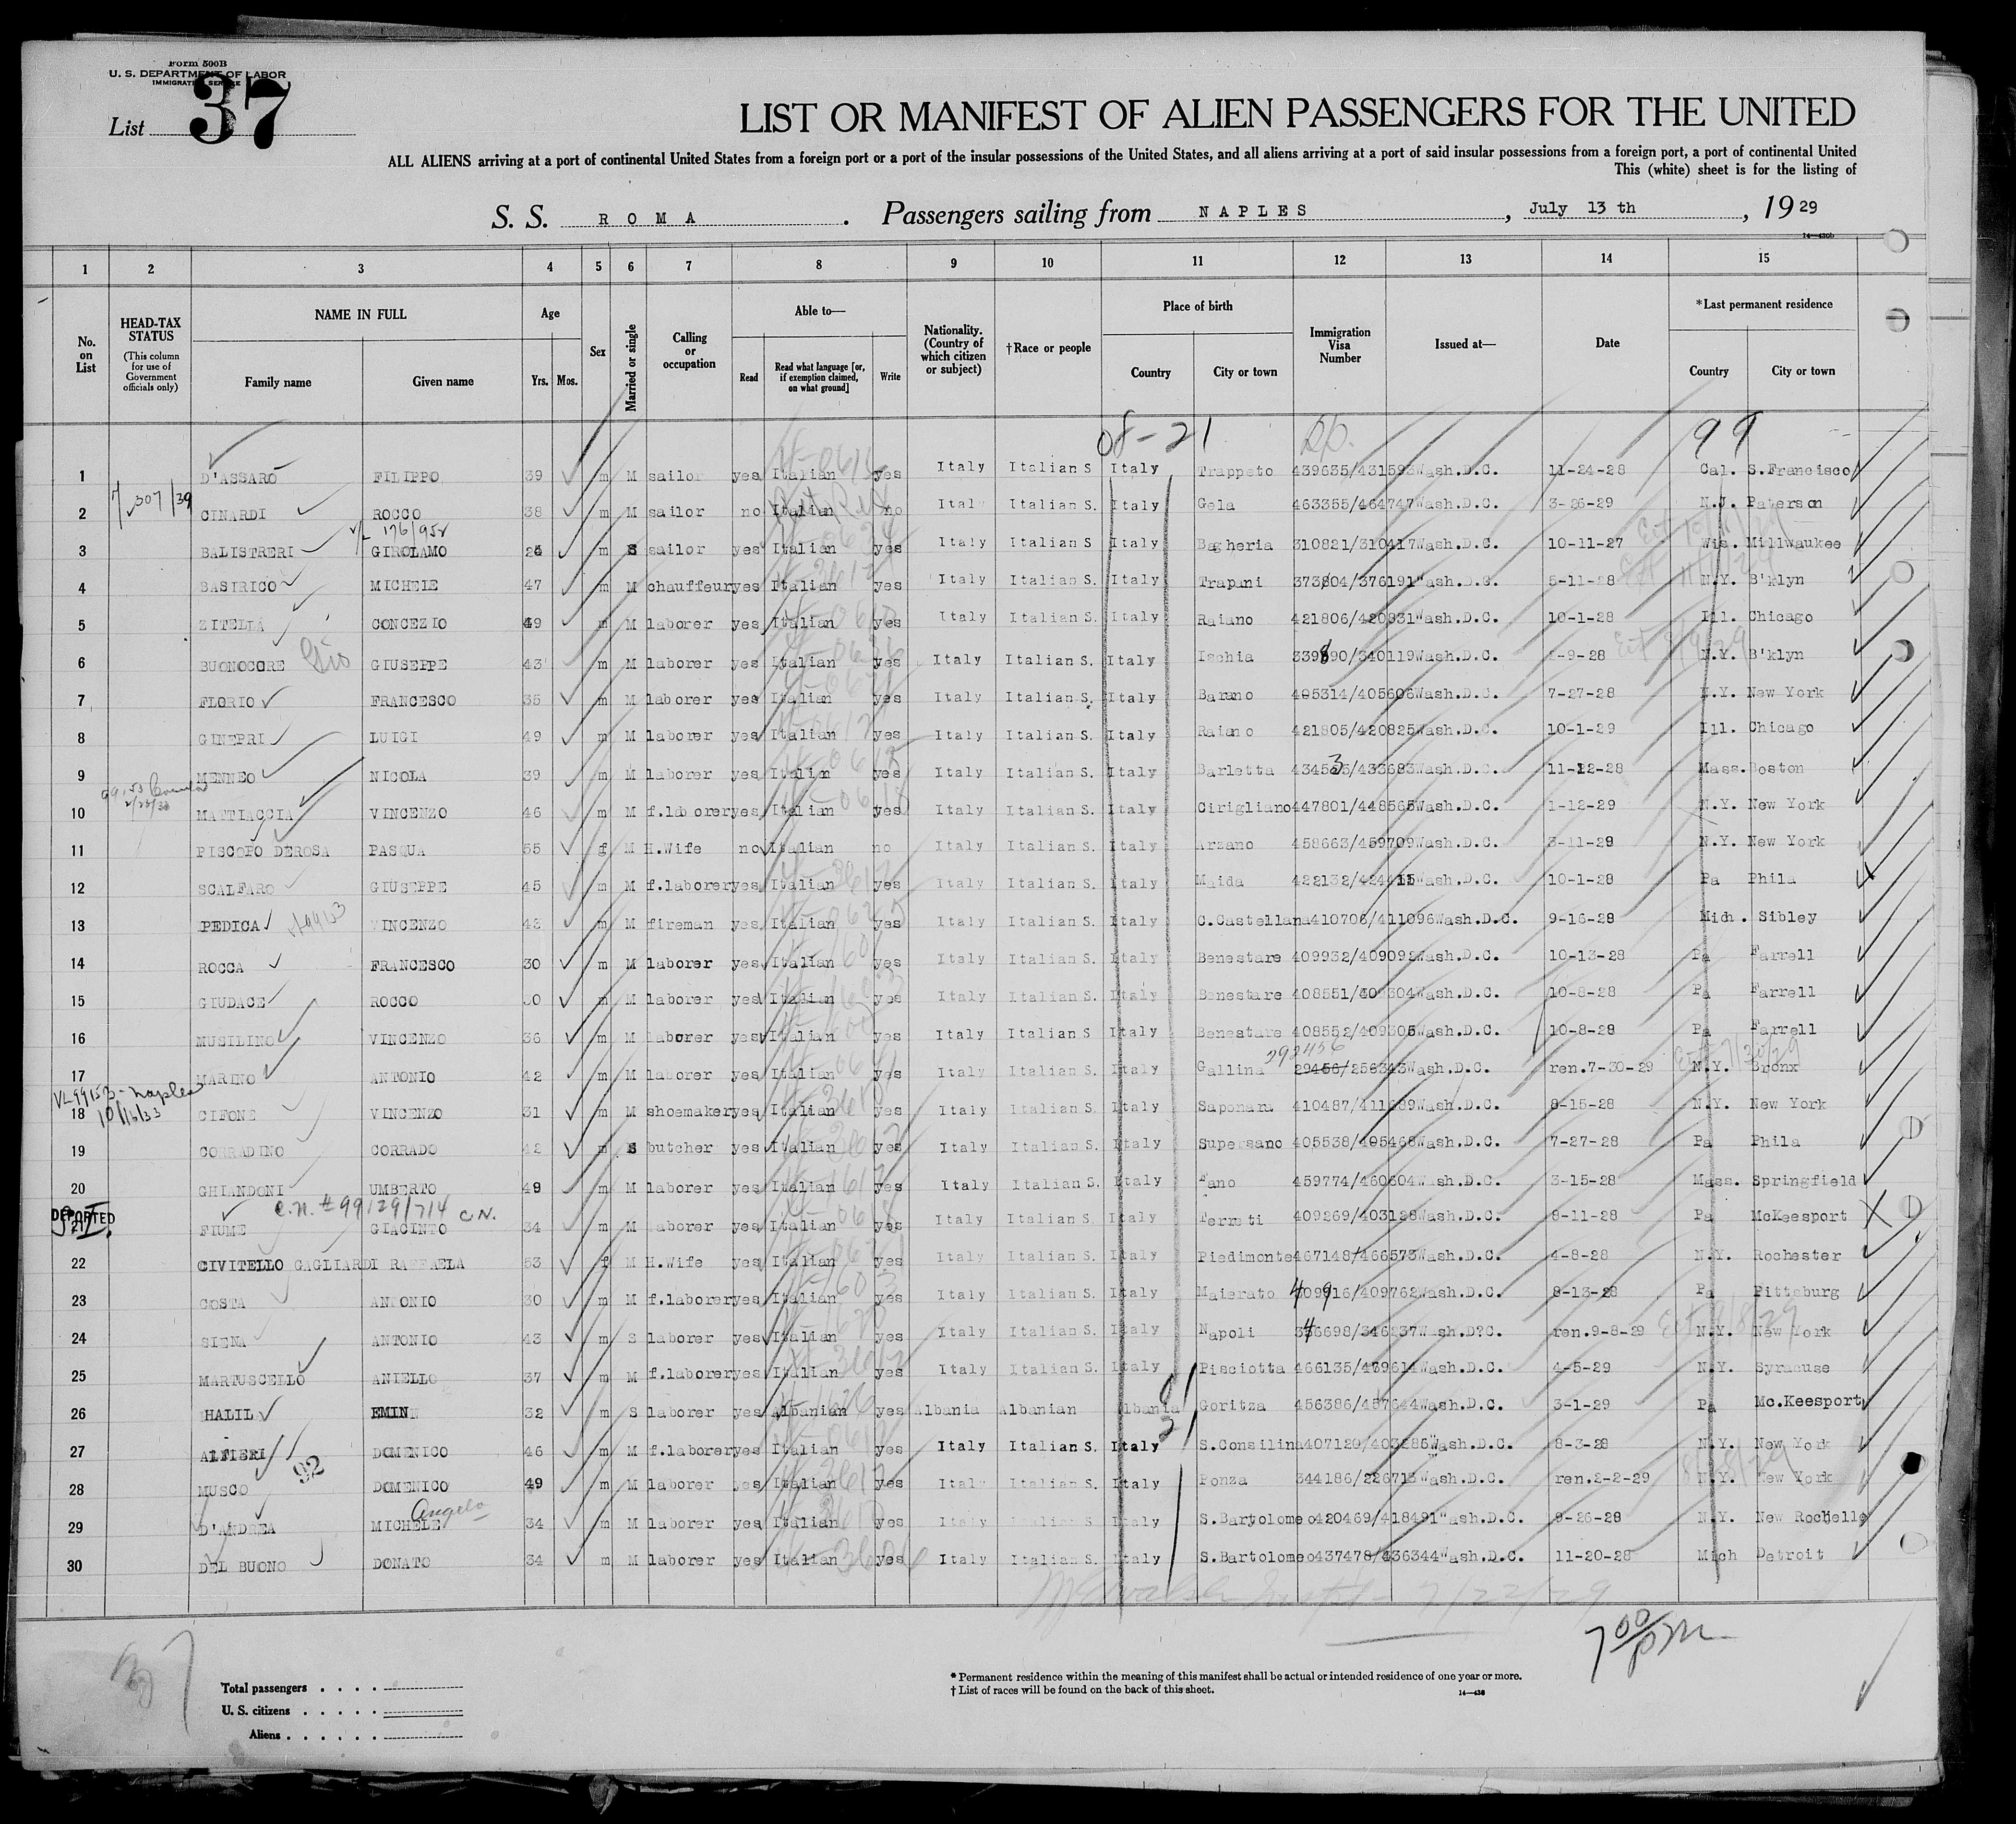 Form 500B
U. S. DEPARTMENT OF LABOR
IMMIGRATION SERVICE
List 37
LIST OR MANIFEST OF ALIEN PASSENGERS FOR THE UNITED
ALL ALIENS arriving at a port of continental United States from a foreign port or a port of the insular possessions of the United States, and all aliens arriving at a port of said insular possessions from a foreign port, a port of continental United
This (white) sheet is for the listing of
S. S. ROMA. Passengers sailing from NAPLES, July 13 th, 1929
14—430b
1 2 3 4 5 6 7 8 9 10 11 12 13 14 15
No. on List
HEAD-TAX STATUS (This column for use of Government officials only)
NAME IN FULL
Family name Given name
Age
Yrs. Mos.
Sex
Married or single
Calling or occupation
Able to—
Read Read what language [or, if exemption claimed, on what ground] Write
Nationality. (Country of which citizen or subject)
†Race or people
Place of birth
Country City or town
Immigration Visa Number
Issued at—
Date
*Last permanent residence
Country City or town
08-21 99
1 D'ASSARO FILIPPO 39 m M sailor yes Italian yes Italy Italian S Italy Trappeto 439635/431593 Wash.D.C. 11-24-28 Cal. S.Francisco
7/307/39
2 CINARDI ROCCO 38 m M sailor no Italian no Italy Italian S. Italy Gela 463355/464747 Wash.D.C. 3-26-29 N.J. Paterson
176/952
3 BALISTRERI GIROLAMO m S sailor yes Italian yes Italy Italian S Italy Bagheria 310821/310417 Wash.D.C. 10-11-27 Wis. Millwaukee
4 BASIRICO MICHELE 47 m M chauffeur yes Italian yes Italy Italian S. Italy Trapani 373804/376191 "ash.D.C. 5-11-28 N.Y. B'klyn
5 ZITELIA CONCEZIO 49 m M laborer yes Italian yes Italy Italian S. Italy Raiano 421806/420831 "ash.D.C. 10-1-28 Ill. Chicago
6 BUONOCORE Gio GIUSEPPE 43 m M laborer yes Italian yes Italy Italian S. Italy Ischia 339890/340119 Wash.D.C. -9-28 N.Y. B'klyn
7 FLORIO FRANCESCO 35 m M laborer yes Italian yes Italy Italian S. Italy Barano 405314/405606 Wash.D.C. 7-27-28 N.Y. New York
8 GINEPRI LUIGI 49 m M laborer yes Italian yes Italy Italian S. Italy Raiano 421805/420825 Wash.D.C. 10-1-29 Ill. Chicago
9 MENNEO NICOLA 39 m M laborer yes Italian yes Italy Italian S. Italy Barletta 434535/433683 Wash.D.C. 11-12-28 Mass. Boston
10 MATTIACCIA VINCENZO 46 m M f.laborer yes Italian yes Italy Italian S. Italy Cirigliano 447801/448565 Wash.D.C. 1-12-29 N.Y. New York
11 PISCOPO DEROSA PASQUA 55 f M H.Wife no Italian no Italy Italian S. Italy Arzano 458663/459709 Wash.D.C. 3-11-29 N.Y. New York
12 SCALFARO GIUSEPPE 45 m M f.laborer yes Italian yes Italy Italian S. Italy Maida 422132/424415 Wash.D.C. 10-1-28 Pa Phila
13 PEDICA VINCENZO 43 m M fireman yes Italian yes Italy Italian S. Italy C.Castellana 410706/411096 Wash.D.C. 9-16-28 Mich. Sibley
14 ROCCA FRANCESCO 30 m M laborer yes Italian yes Italy Italian S. Italy Benestare 409932/409092 Wash.D.C. 10-13-28 Pa Farrell
15 GIUDACE ROCCO m M laborer yes Italian yes Italy Italian S. Italy Benestare Wash.D.C. 10-8-28 Pa Farrell
16 MUSILINO VINCENZO 36 m M laborer yes Italian yes Italy Italian S Italy Benestare 408552/409305 Wash.D.C. 10-8-28 Pa Farrell
292456
17 MARINO ANTONIO 42 m M laborer yes Italian yes Italy Italian S. Italy Gallina 29456/256343 Wash.D.C. ren.7-30-29 N.Y. Bronx
VL99153-Naples
10/16/33
18 CIFONE VINCENZO 31 m M shoemaker yes Italian yes Italy Italian S. Italy Saponara Wash.D.C. 8-15-28 N.Y. New York
19 CORRADINO CORRADO 42 m S butcher yes Italian yes Italy Italian S. Italy Supersano 405538/405466 Wash.D.C. 7-27-28 Pa Phila
20 GHIANDONI UMBERTO 49 m M laborer yes Italian yes Italy Italian S. Italy Fano 459774/460604 Wash.D.C. 3-15-28 Mass. Springfield
DEPORTED C.N.#99129/714 C.N.
21 FIUME GIACINTO 34 m M laborer yes Italian yes Italy Italian S. Italy Ferrati 409269/403128 Wash.D.C. 8-11-28 Pa McKeesport
22 CIVITELLO GAGLIARDI RAFFAELA 53 f M H.Wife yes Italian yes Italy Italian S. Italy Piedimonte 467148/466573 Wash.D.C. 4-8-28 N.Y. Rochester
23 COSTA ANTONIO 30 m M f.laborer yes Italian yes Italy Italian S. Italy Maierato 409916/409762 Wash.D.C. 8-13-28 Pa Pittsburg
24 SIENA ANTONIO 43 m S laborer yes Italian yes Italy Italian S. Italy Napoli Wash.D?C. ren.9-8-29 N.Y. New York
25 MARTUSCELLO ANIELLO 37 m M f.laborer yes Italian yes Italy Italian S. Italy Pisciotta 466135/479614 Wash.D.C. 4-5-29 N.Y. Syracuse
26 HALIL EMIN 32 m S laborer yes Albanian yes Albania Albanian Albania Goritza 456386/457644 Wash.D.C. 3-1-29 Pa Mc.Keesport
27 ALFIERI DOMENICO 46 m M f.laborer yes Italian yes Italy Italian S. Italy S.Consilina 407120/403285 Wash.D.C. 8-3-28 N.Y. New York
92
28 MUSCO DOMENICO 49 m M laborer yes Italian yes Italy Italian S. Italy Ponza 344186/226713 Wash.D.C. ren.2-2-29 N.Y. New York
Angelo
29 D'ANDREA MICHELE 34 m M laborer yes Italian yes Italy Italian S. Italy S.Bartolomeo 420469/418491 "ash.D.C. 9-26-28 N.Y. New Rochelle
30 DEL BUONO DONATO 34 m M laborer yes Italian yes Italy Italian S. Italy S.Bartolomeo 437478/436344 "ash.D.C. 11-20-28 Mich Detroit
7/22/29
7 00 pm
Total passengers
U. S. citizens
Aliens
* Permanent residence within the meaning of this manifest shall be actual or intended residence of one year or more.
† List of races will be found on the back of this sheet.
14—430